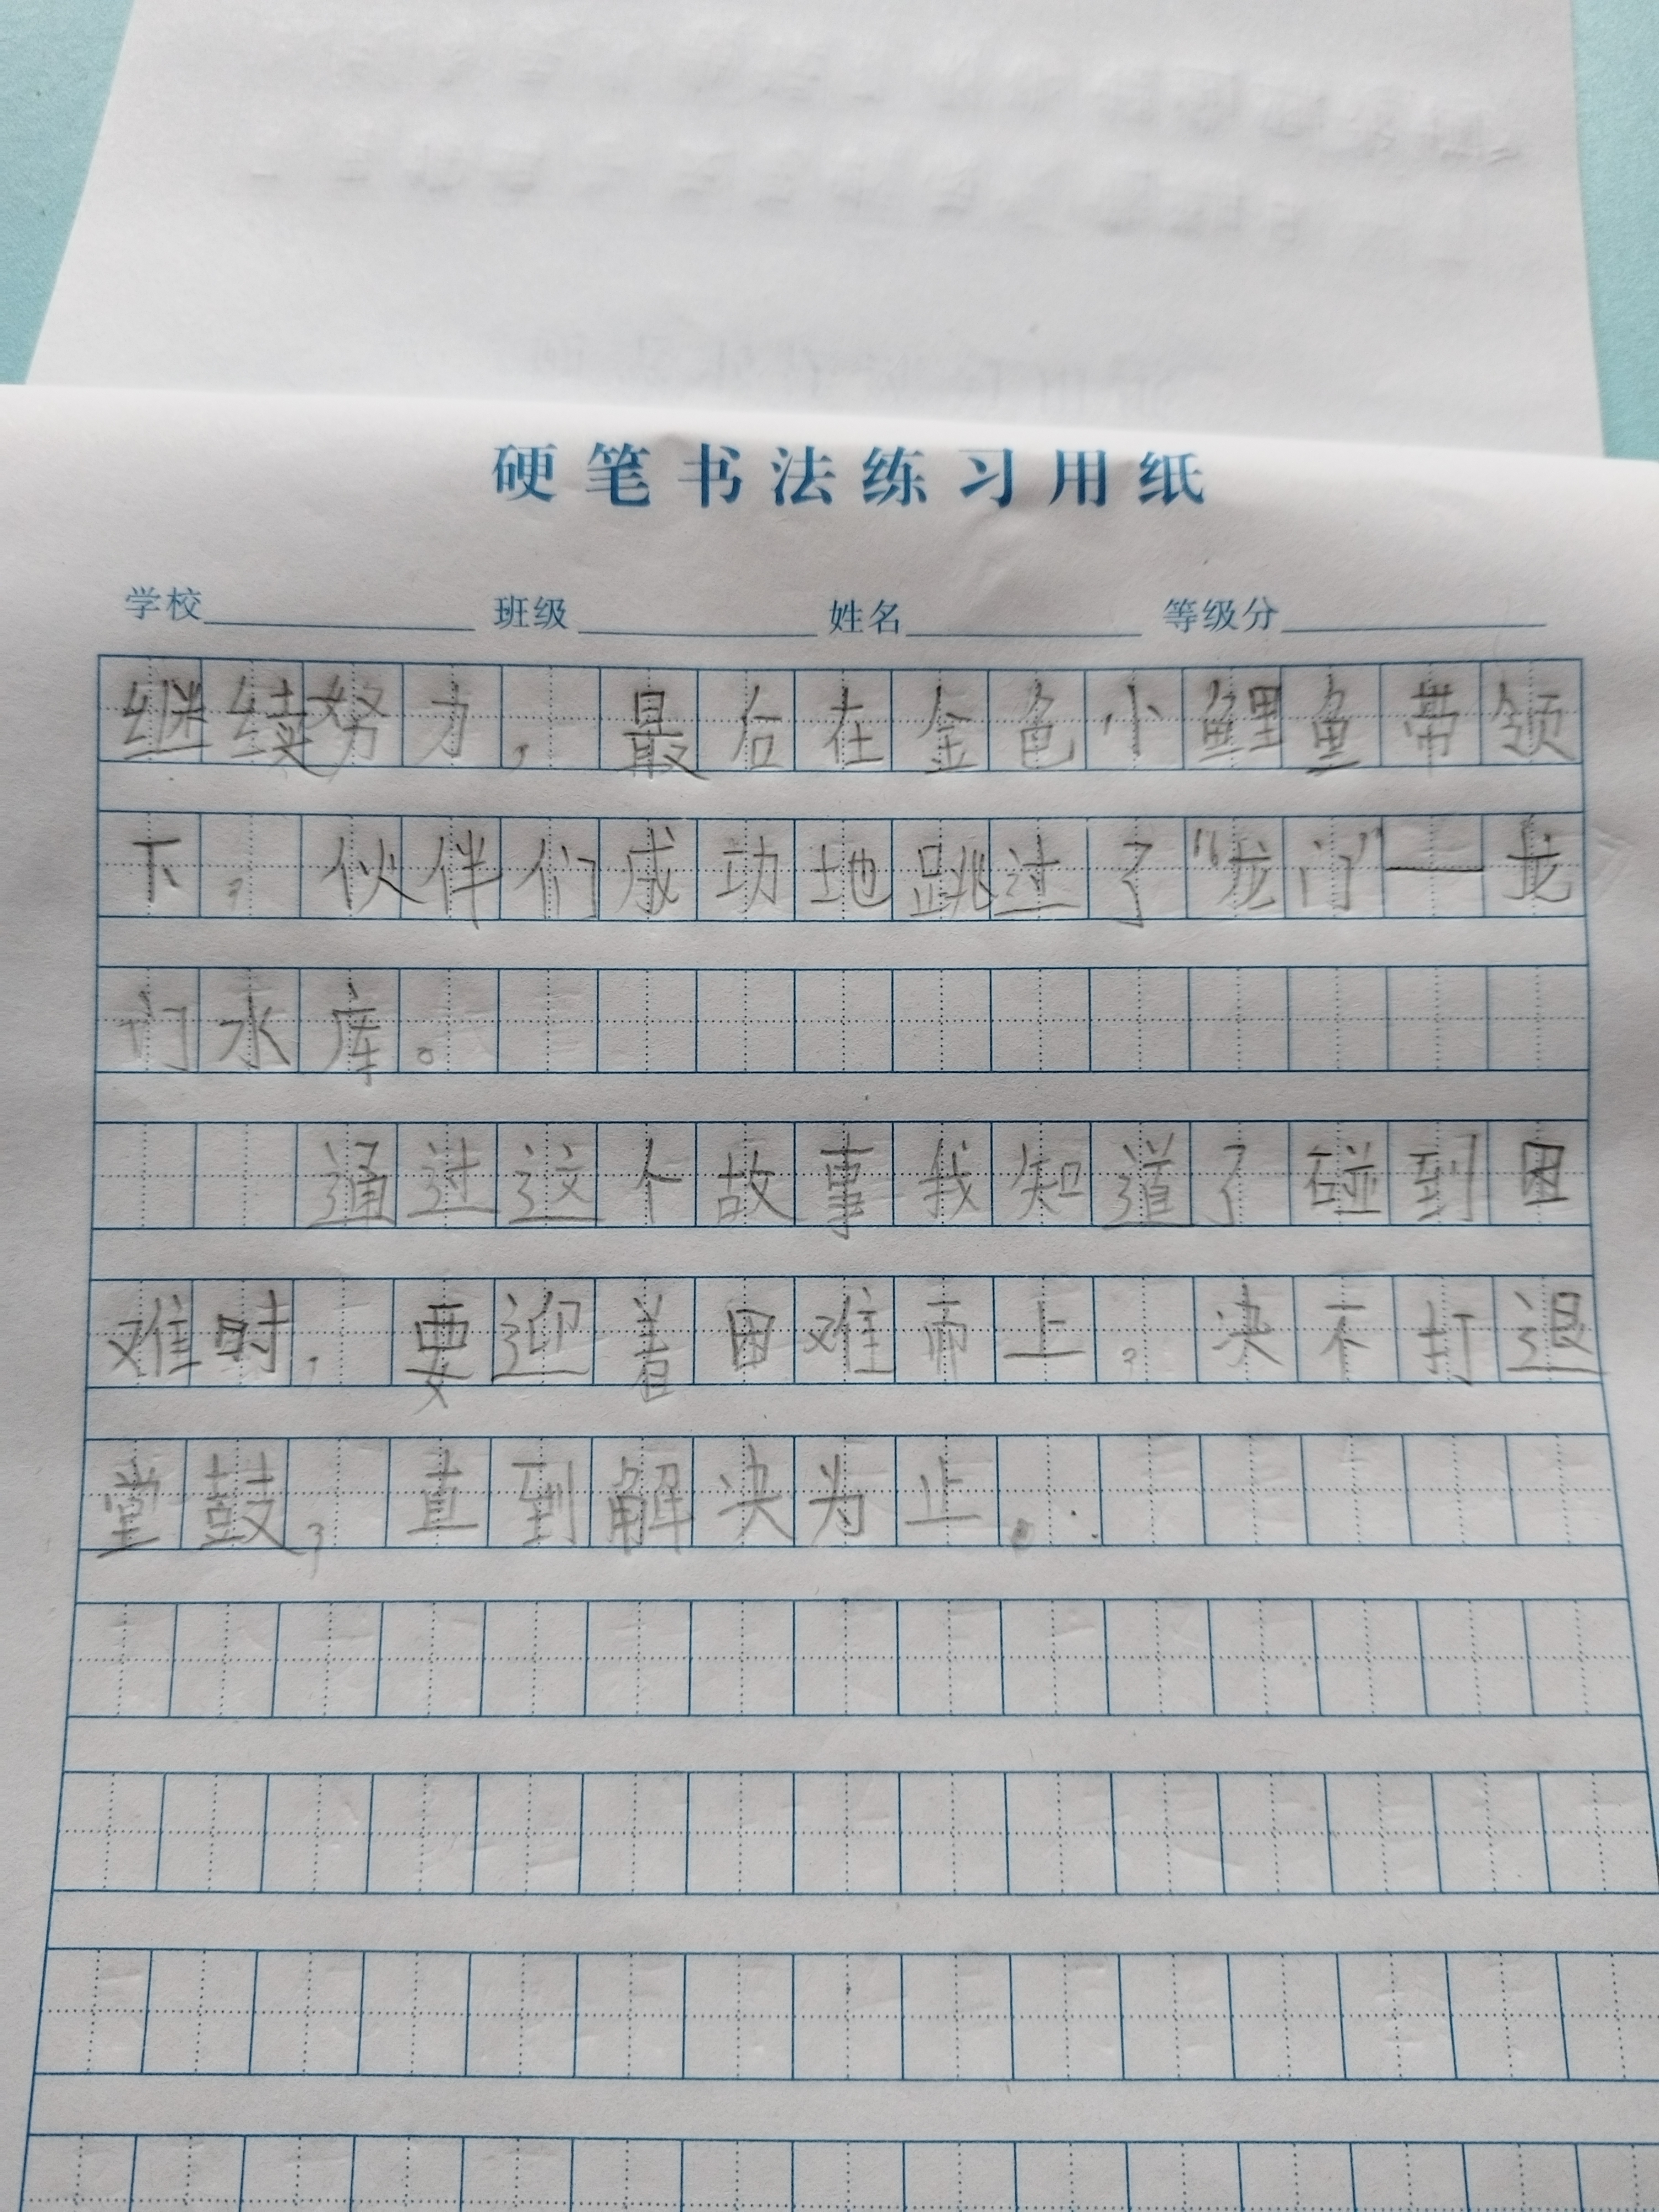 硬笔书法练习用纸
学校 班级 姓名 等级分
继续努力，最后在金色小鲤鱼带领
下，伙伴们成功地跳过了“龙门”—龙
门水库。
通过这个故事我知道了碰到困
难时，要迎着困难而上。决不打退
堂鼓，直到解决为止。